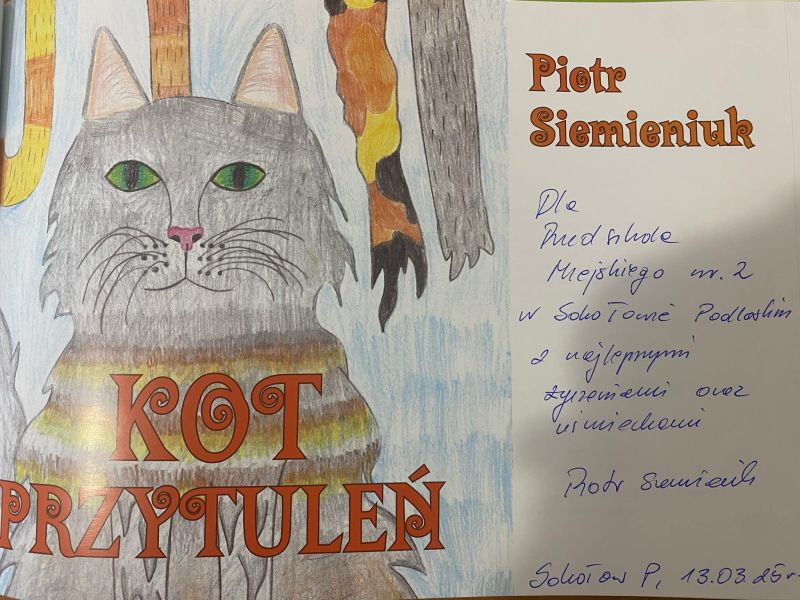 KOT
PRZYTULEŃ
Piotr
Siemieniuk
Dla
Przedszkola
Miejskiego nr. 2
w Sokołowie Podlaskim
z najlepszymi
życzeniami oraz
uśmiechami
Piotr Siemieniuk
Sokołów P, 13.03.25r.